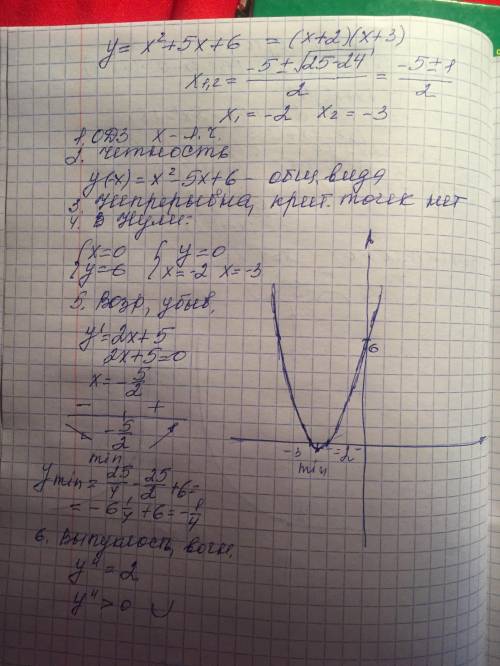 y = x²+5x+6 = (x+2)(x+3)
x₁,₂ = (-5±√25-24)/2 = (-5±1)/2
x₁ = -2 x₂ = -3
1. ОДЗ x - л.ч.
2. Четность
y(x) = x²-5x+6 - общ. вида
3. Непрерывна, крит. точек нет
4. Нули:
{x=0 {y=0
{y=6 {x=-2 x=-3
5. Возр, убыв,
y' = 2x+5
2x+5=0
x = -5/2
- +
-5/2
min
y min = 25/4 - 25/2 + 6 =
= -6 1/4 + 6 = -1/4
6. Выпуклость, вогн.
y'' = 2
y'' > 0 ∪
6
-3 -2
min